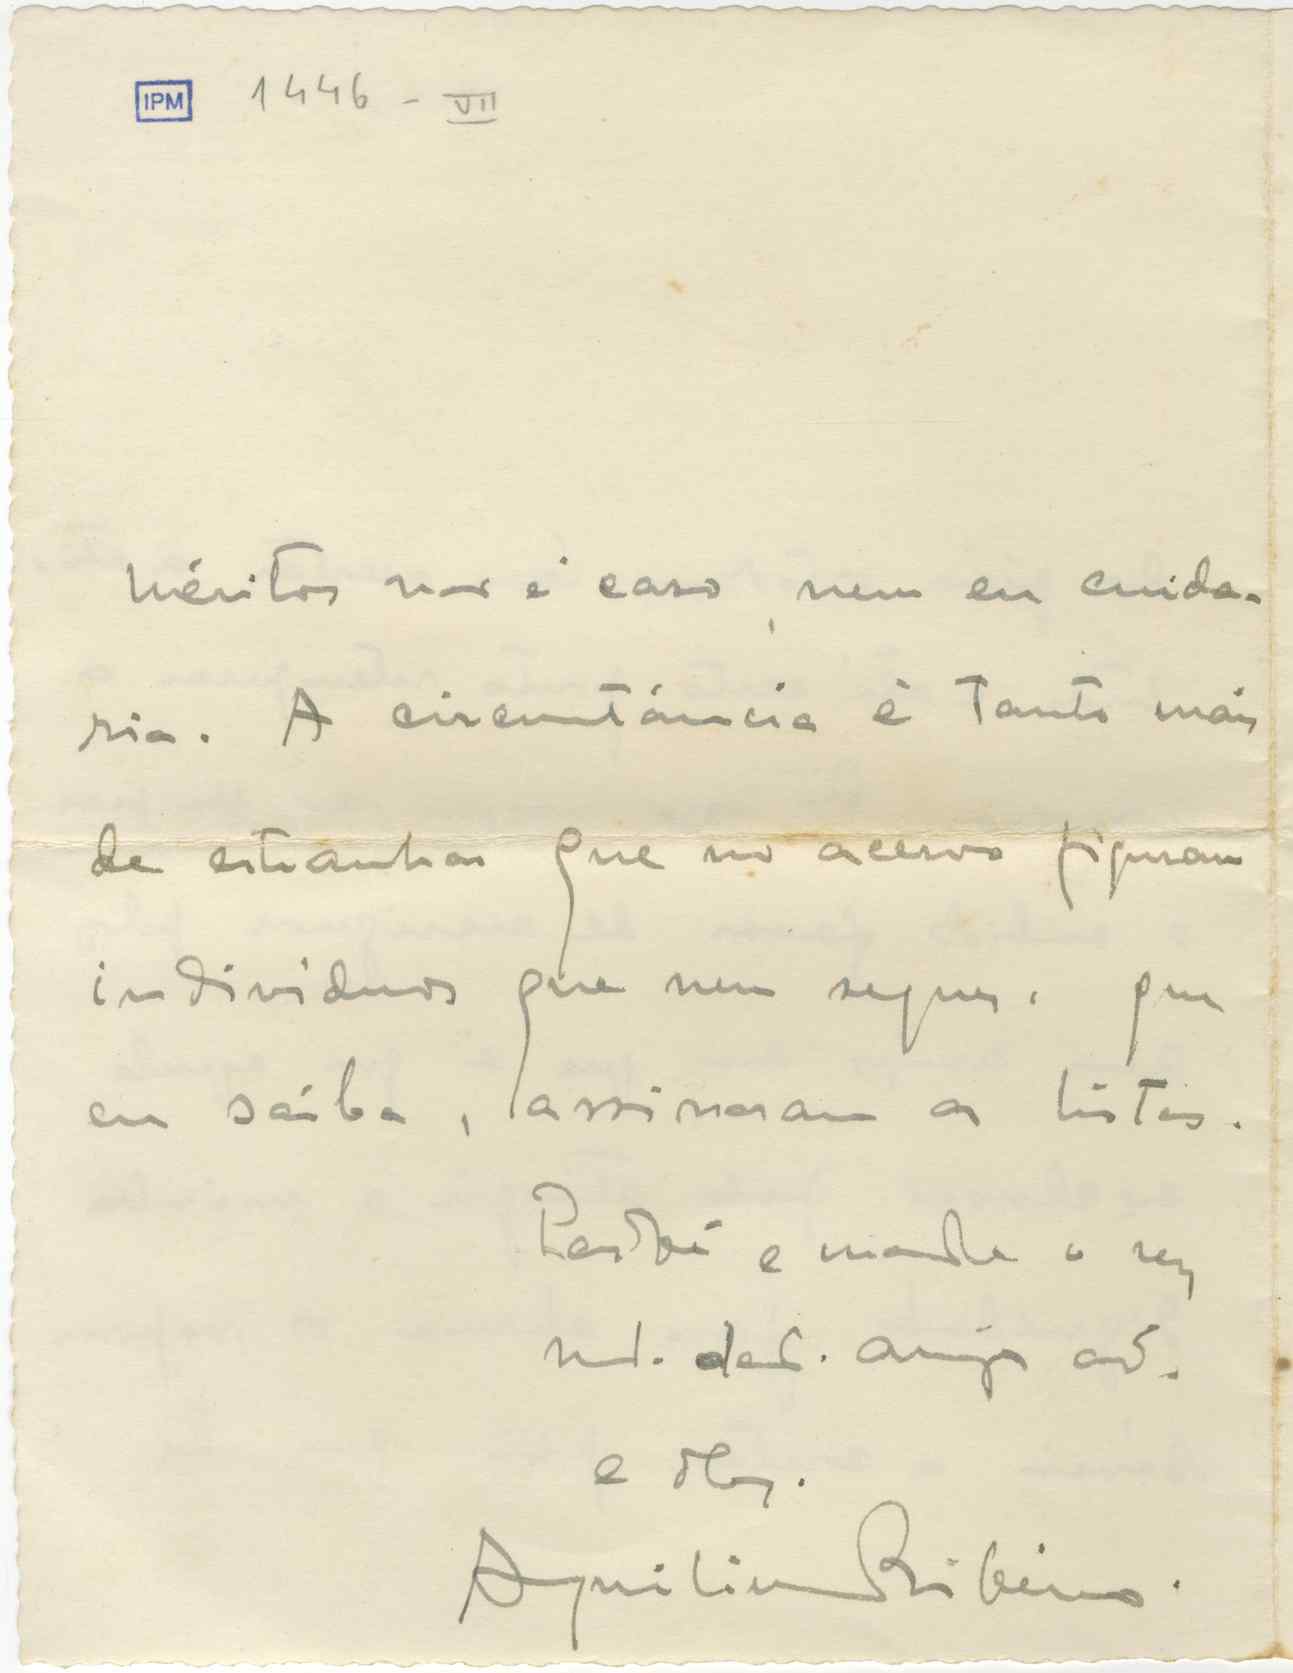 IPM 1446 - VII
méritos não é caso, nem eu cuida-
ria. A circunstância é tanto máis
de estranhar que no acervo figuram
individuos que nem sequer, que
eu sáiba, assinaram as listas.
Perdôe e mande o seu
m.to ded. amigo ad.
e obg.
Aquilino Ribeiro.